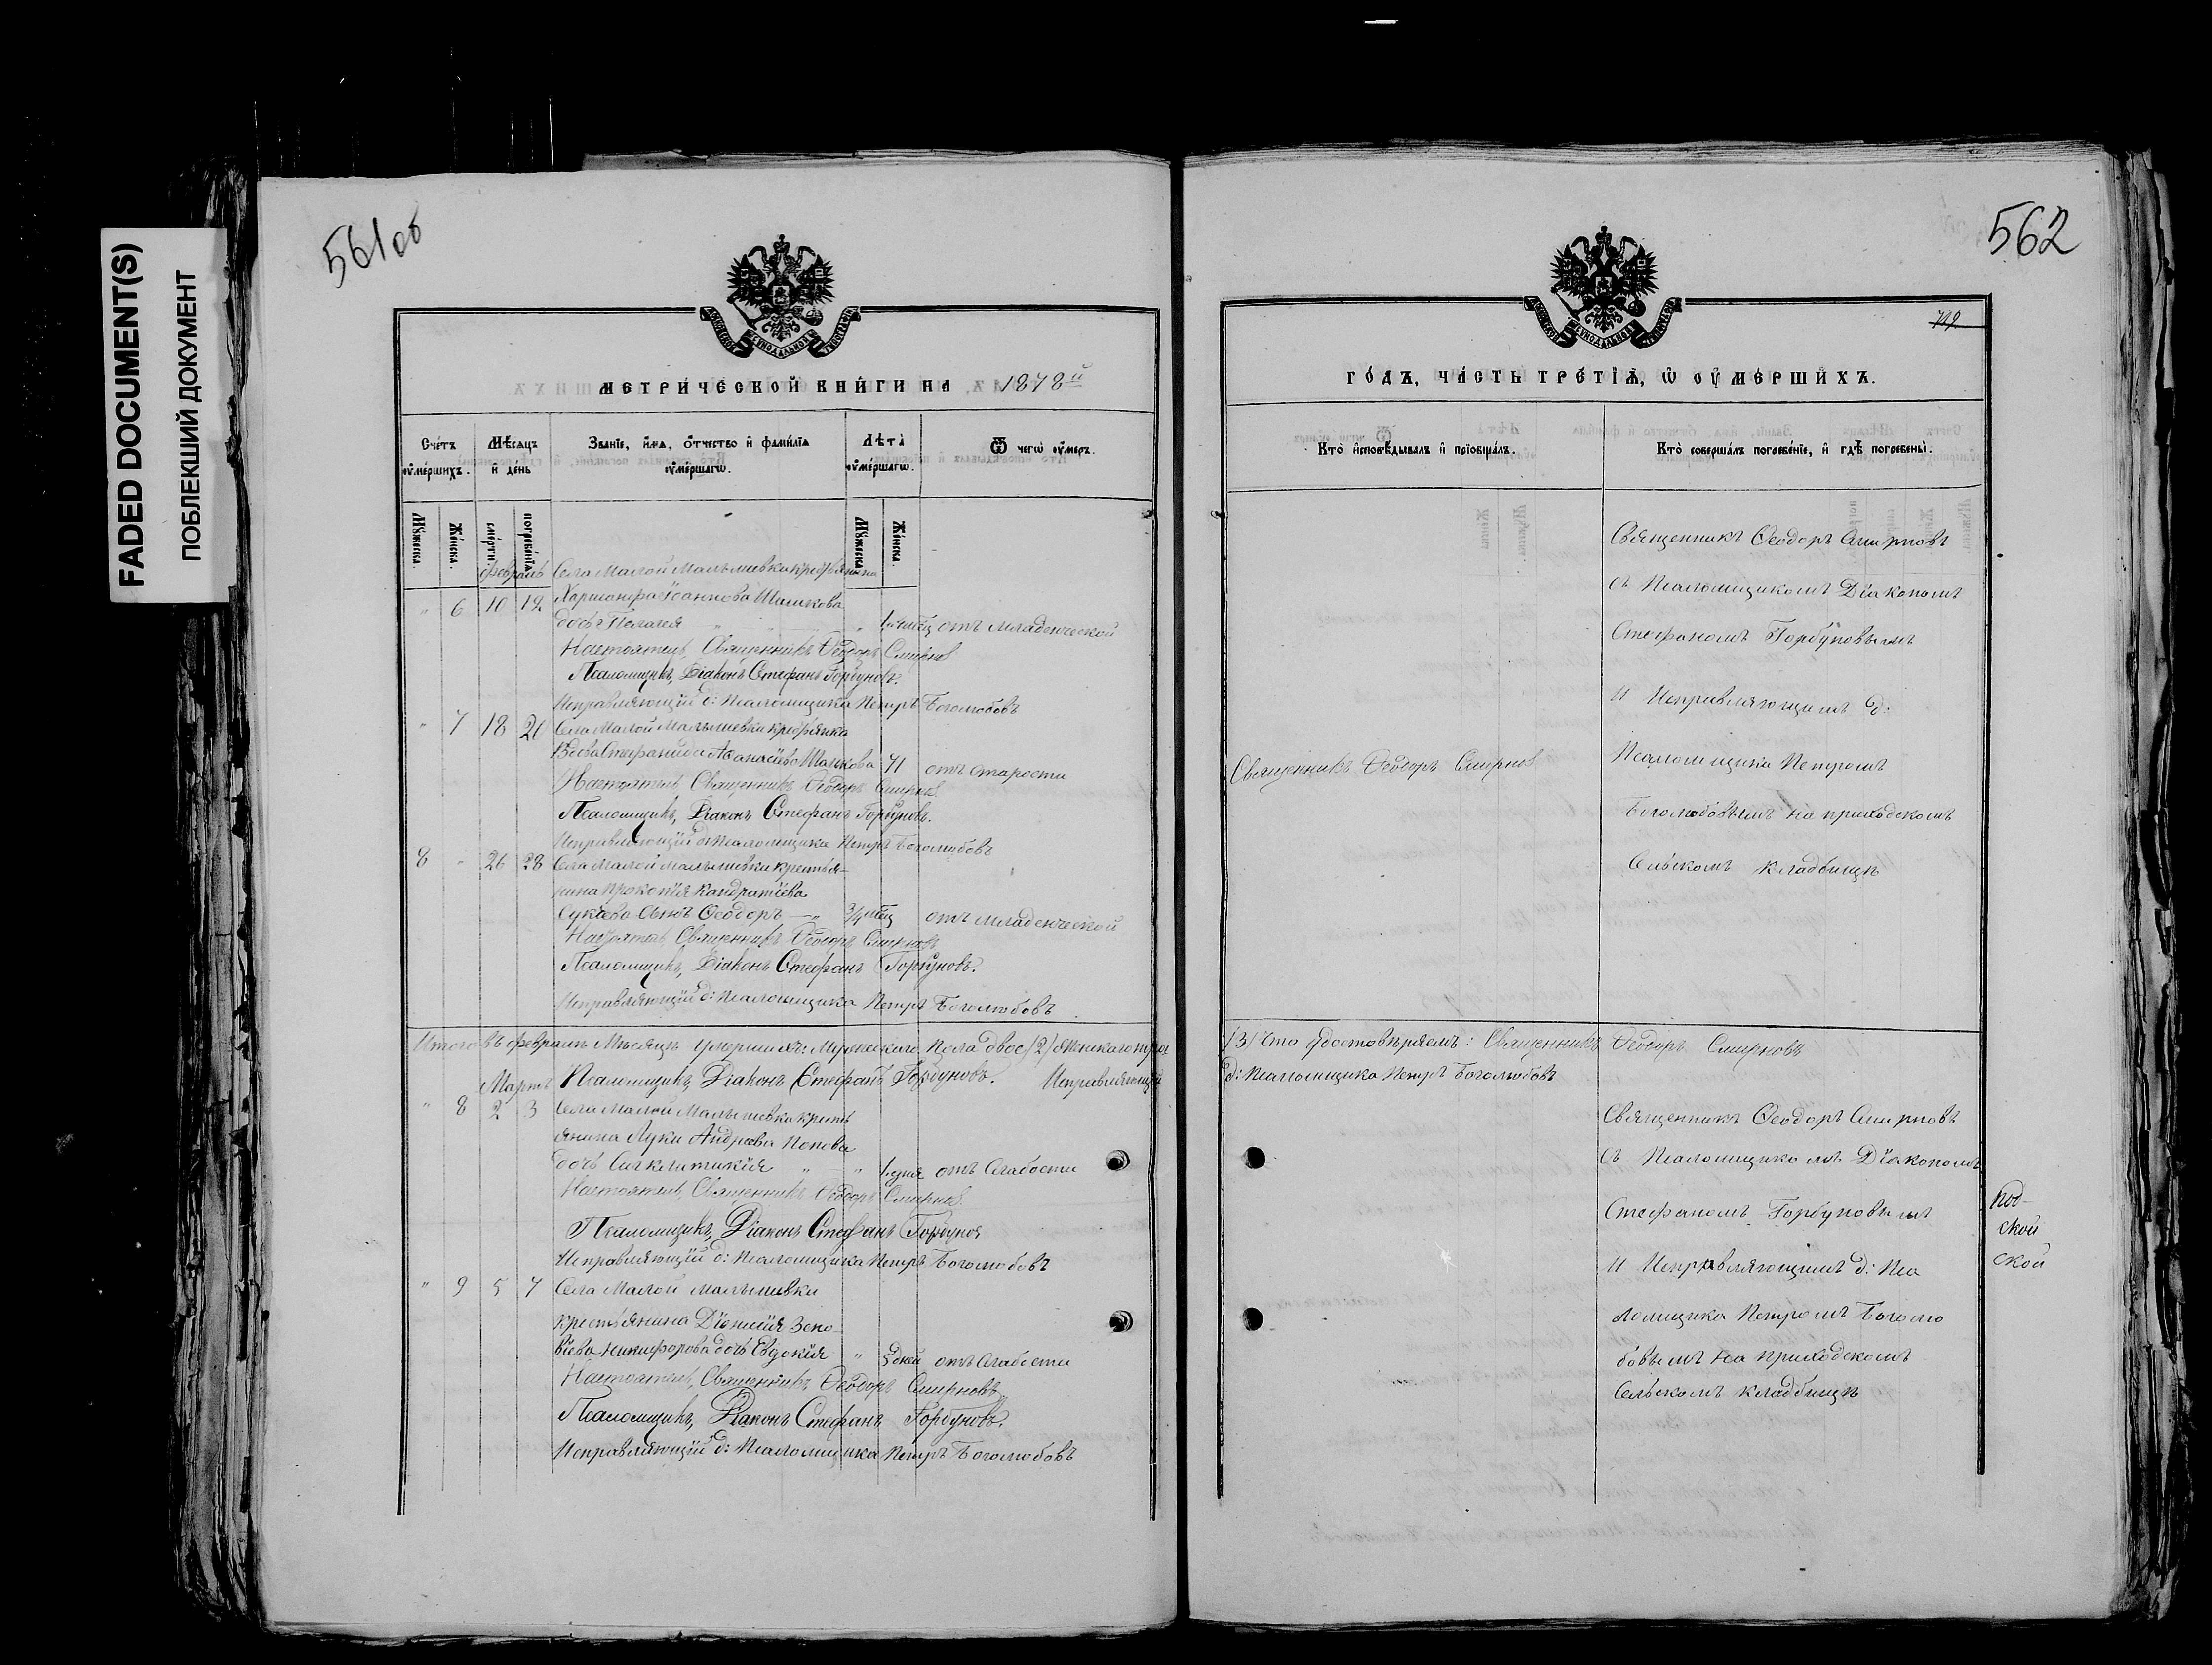 FADED DOCUMENT(S)
ПОБЛЕКШИЙ ДОКУМЕНТ
561 об
МЕТРИЧЕСКОЙ КНИГИ НА 1878й
Счетъ умершихъ.
Мѣсяцъ и день
Званіе, имя, отчество и фамилія умершаго.
Лѣта умершаго.
Ѿ чегѡ умеръ.
Мужеска.
Женска.
смерти.
погребенія
Мужеска
Женска.
Февраль Села Малой Малышевки крестьянина
" 6 10 12 Іоаннова Шашкова
дочь Пелагея " отъ младенческой
Настоятель, Священникъ Ѳеодоръ Смирнов
Псаломщикъ, Діаконъ Стефанъ Горбуновъ.
Исправляющій д: Псаломщика Петръ Боголюбовъ
" 7 18 20 Села Малой Малышевки крестьянка
Вдова Стефанида Аѳанасіева Шашкова 71 отъ старости
Настоятель, Священникъ Ѳеодоръ Смирнов.
Псаломщикъ, Діаконъ Стефанъ Горбуновъ.
Исправляющій д: Псаломщика Петръ Боголюбовъ
8 " 26 28 Села Малой Малышевки крестья-
нина Прокопія Кандратіева
Сукаева сынъ Ѳеодоръ 3/4 мѣц отъ младенческой
Настоятель, Священникъ Ѳеодоръ Смирновъ
Псаломщикъ, Діаконъ Стефанъ Горбуновъ.
Исправляющій д: Псаломщика Петръ Боголюбовъ
Итого въ февралѣ Мѣсяцѣ умершихъ: Мужескаго пола двое /2/ Женскаго трое
Мартъ Псаломщикъ, Діаконъ Стефанъ Горбуновъ. Исправляющій
" 8 2 3 Села Малой Малышевки кресть
янина Луки Андреева Попова
дочь Синклитикія " " 1 дня отъ слабости
Настоятель, Священникъ Ѳеодоръ Смирнов.
Псаломщикъ, Діаконъ Стефанъ Горбунов
Исправляющій д: Псаломщика Петръ Боголюбовъ
" 9 5 7 Села Малой Малышевки
крестьянина Діонисія Зено-
віева Никифорова дочь Евдокія " 5 дней отъ слабости
Настоятель, Священникъ Ѳеодоръ Смирновъ
Псаломщикъ, Діаконъ Стефанъ Горбуновъ.
Исправляющій д: Псаломщика Петръ Боголюбовъ
562
ГОДЪ, ЧАСТЬ ТРЕТІЯ, Ѡ УМЕРШИХЪ.
Кто исповѣдывалъ и пріобщалъ.
Кто совершалъ погребеніе, и гдѣ погребены.
Священникъ Ѳеодоръ Смирновъ
съ Псаломщикомъ Діакономъ
Стефаномъ Горбуновымъ
и Исправляющимъ д:
Священникъ Ѳеодоръ Смирнов
Псаломщика Петромъ
Боголюбовымъ на приходскомъ
Сельскомъ кладбищѣ
/3/ Что удостовѣряемъ: Священникъ Ѳеодоръ Смирновъ
д: Псаломщика Петръ Боголюбовъ
Священникъ Ѳеодоръ Смирновъ
съ Псаломщикомъ Діакономъ
Стефаномъ Горбуновымъ
и Исправляющимъ д: Пса
ломщика Петромъ Боголю
бовымъ на приходскомъ
Сельскомъ кладбищѣ
ской
ской